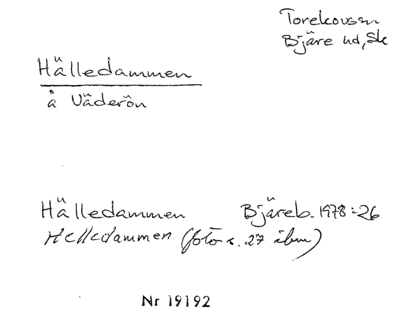 Torekov sn
Bjäre hd, Sk
Hälledammen
å Väderön
Hälledammen Bjäreb. 1978:26
Helledammen (foto s. 27 ibm)
Nr 19192